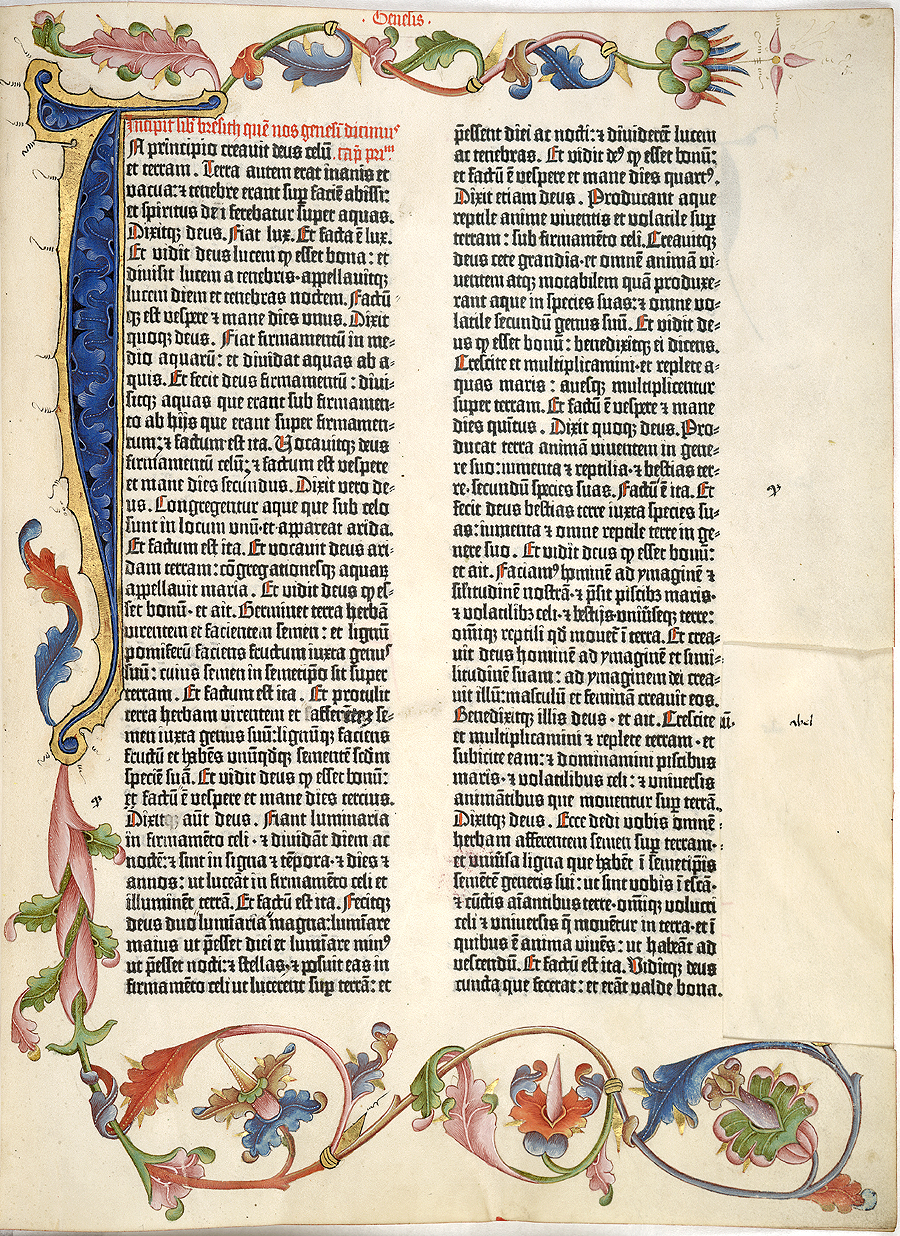 Genesis
Incipit liber bresith quē nos genesim dicimus
In principio creauit deus celū cap̄ prim̄
et terram. Terra autem erat inanis et
vacua: ⁊ tenebre erant sup̄ faciē abissi:
et spiritus dei ferebatur super aquas.
Dixitqꝫ deus. Fiat lux. Et facta ē lux.
Et vidit deus lucem ꝙ esset bona: et
diuisit lucem a tenebris. appellauitqꝫ
lucem diem et tenebras noctem. Factū
qꝫ est vespere ⁊ mane dies vnus. Dixit
quoqꝫ deus. Fiat firmamentū in me-
dio aquarū: et diuidat aquas ab a-
quis. Et fecit deus firmamentū: diui-
sitqꝫ aquas que erant sub firmamen-
to ab hijs que erant super firmamen-
tum: ⁊ factum est ita. Vocauitqꝫ deus
firmamentū celū: ⁊ factum est vespere
et mane dies secundus. Dixit vero de-
us. Congregentur aque que sub celo
sunt in locum vnū et appareat arida.
Et factum est ita. Et vocauit deus ari-
dam terram: cōgregationesqꝫ aquaꝝ
appellauit maria. Et vidit deus ꝙ es-
set bonū. et ait. Germinet terra herbā
virentem et facientem semen: et lignū
pomiferū faciens fructum iuxta genus
suū: cuius semen in semetipso sit super
terram. Et factum est ita. Et protulit
terra herbam virentem et afferētem se-
men iuxta genus suū: lignūqꝫ faciens
fructū et habēs unūqdqꝫ sementē scdm
speciē suā. Et vidit deus ꝙ esset bonū:
et factū ē vespere et mane dies tercius.
Dixit aūt deus. Fiant luminaria
in firmamēto celi. ⁊ diuidāt diem ac
noctē: ⁊ sint in signa ⁊ tēpora. ⁊ dies ⁊
annos: ut luceāt in firmamēto celi et
illuminēt terrā. Et factū est ita. Fecitqꝫ
deus duo luminaria magna: luminare
maius ut p̄esset diei et luminare minꝰ
ut p̄esset nocti: ⁊ stellas. ⁊ posuit eas in
firmamēto celi ut lucerent sup̄ terrā: et
p̄essent diei ac nocti: ⁊ diuiderēt lucem
ac tenebras. Et vidit deꝰ ꝙ esset bonū:
et factū ē vespere et mane dies quartꝰ.
Dixit etiam deus. Producant aque
reptile anime viuentis et volatile sup̄
terram: sub firmamēto celi. Creauitqꝫ
deus cete grandia. et omnē animā vi-
uentem atqꝫ motabilem quā produxe-
rant aque in species suas: ⁊ omne vo-
latile secundū genus suū. Et vidit de-
us ꝙ esset bonū: benedixitqꝫ ei dicens.
Crescite et multiplicamini. et replete a-
quas maris: auesqꝫ multiplicentur
super terram. Et factū ē vespere ⁊ mane
dies quītus. Dixit quoqꝫ deus. Pro-
ducat terra animā viuentem in gene-
re suo: iumenta ⁊ reptilia. ⁊ bestias ter-
re secundū species suas. Factū ē ita. Et
fecit deus bestias terre iuxta species su-
as: iumenta ⁊ omne reptile terre in ge-
nere suo. Et vidit deus ꝙ esset bonū:
et ait. Faciamꝰ hominē ad ymaginē ⁊
similitudinē nostrā. ⁊ p̄sit piscibꝫ maris.
⁊ volatilibꝫ celi. ⁊ bestijs vniūseqꝫ terre:
omīqꝫ reptili qd mouet ī terra. Et crea-
uit deus hominē ad ymaginē et simi-
litudinē suam: ad ymaginem dei crea-
uit illū: masculū et feminā creauit eos.
Benedixitqꝫ illis deus. et ait. Crescite
et multiplicamini ⁊ replete terram. et
subicite eam: ⁊ dominamini piscibus
maris. ⁊ volatilibus celi: ⁊ uniuersis
animātibus que mouentur sup̄ terrā.
Dixitqꝫ deus. Ecce dedi vobis omnē
herbam afferentem semen sup̄ terram.
et vniūsa ligna que habēt ī semetip̄is
semētē generis sui: ut sint vobis ī escā.
⁊ cūctis aīantibus terre. omīqꝫ volucri
celi ⁊ vniuersis q̄ mouētur in terra. et ī
quibus ē anima viuēs: ut habeāt ad
vescendū. Et factū est ita. Viditqꝫ deus
cuncta que fecerat: et erāt valde bona.
abel